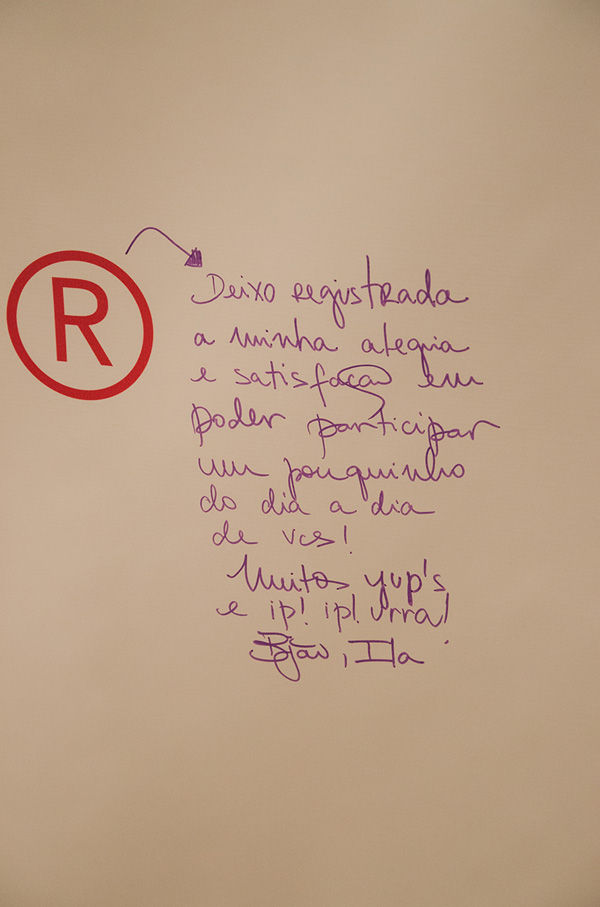 R
Deixo registrada
a minha alegria
e satisfação em
poder participar
um pouquinho
do dia a dia
de vcs!
Muitos yup's
e ip! ip! urra!
Bjão, Ila